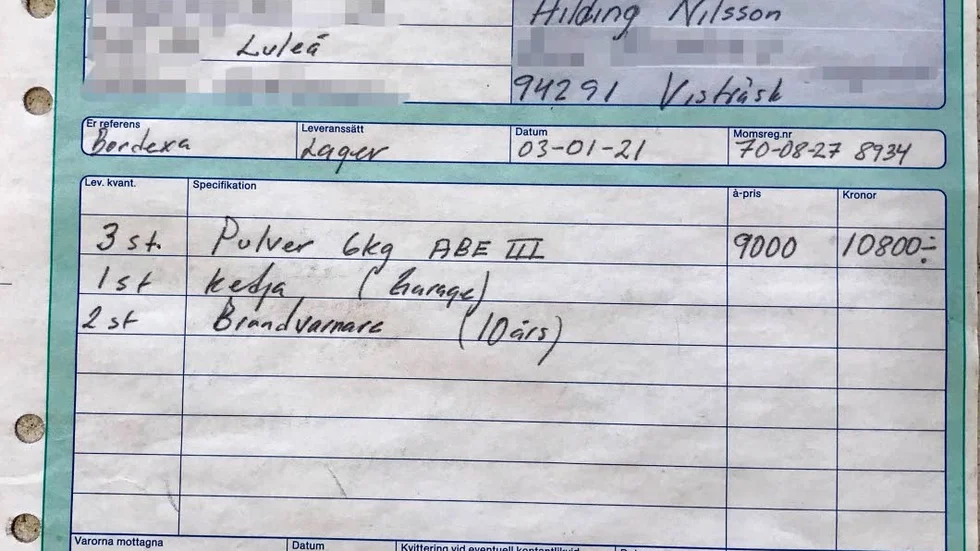 Hilding Nilsson
Luleå
94291 Visträsk
Er referens Leveranssätt Datum Momsreg.nr
Bordexa Lager 03-01-21 70-08-27 8934
Lev. kvant. Specifikation à-pris Kronor
3 st. Pulver 6kg ABE III 9000 10800:-
1 st Kedja (Garage)
2 st Brandvarnare (10 års)
Varorna mottagna Datum Kvittering vid eventuell kontantlikvid